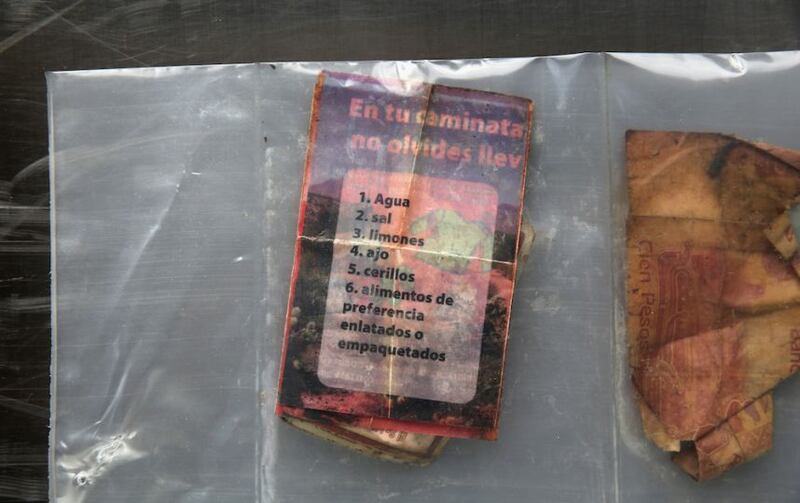 En tu caminata
no olvides llev
1. Agua
2. sal
3. limones
4. ajo
5. cerillos
6. alimentos de
preferencia
enlatados o
empaquetados
Cien Pesos